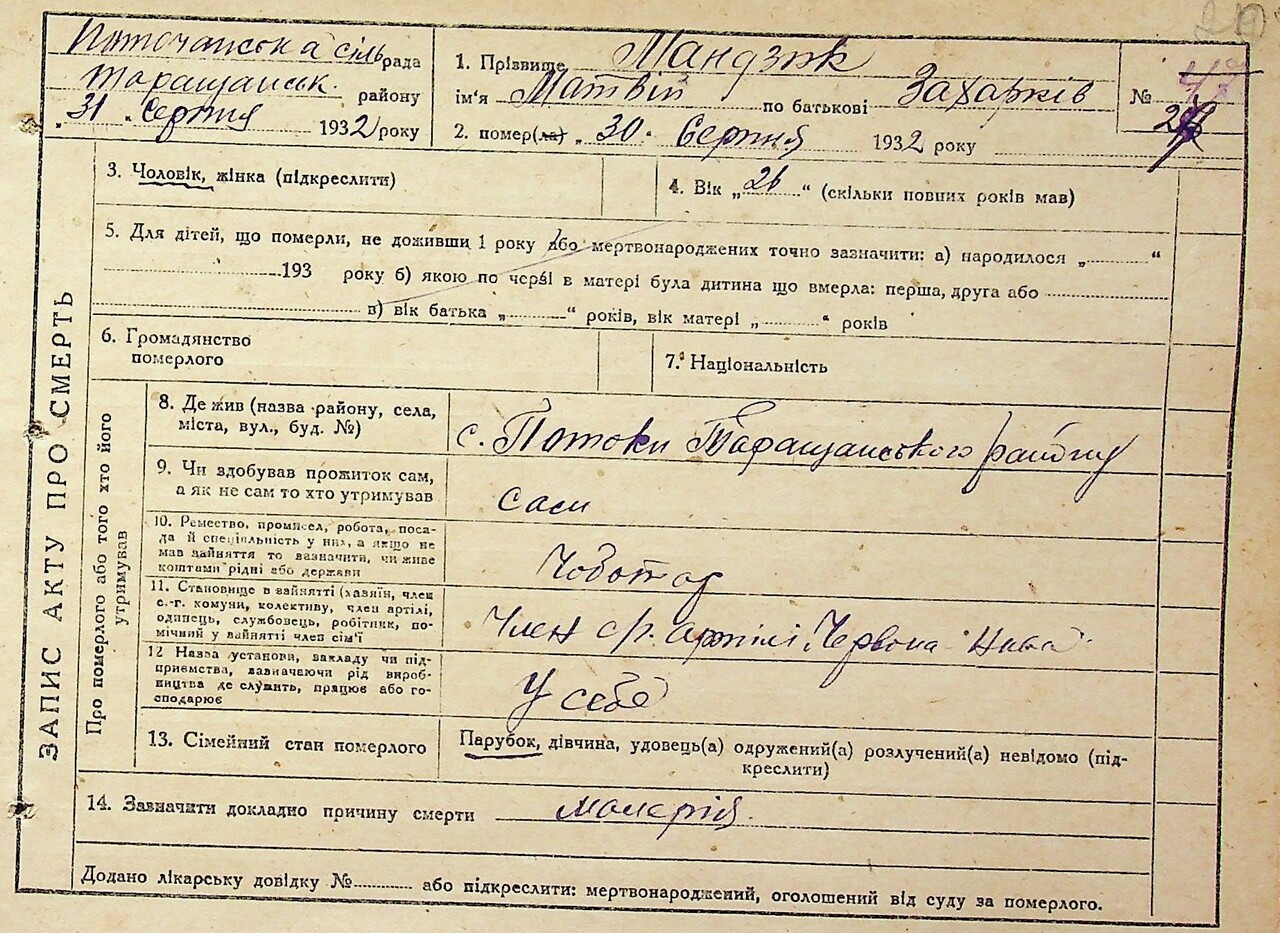 Поточанська сільрада
Таращанськ. району
„31 „ Серпня 1932 року
1. Прізвище Мандзюк
ім'я Матвій по батькові Захарків
2. помер(ла) „ 30 „ Серпня 1932 року
№
3. Чоловік, жінка (підкреслити)
4. Вік „ 26 “ (скільки повних років мав)
5. Для дітей, що померли, не доживши 1 року або мертвонароджених точно зазначити: а) народилося „ “
193 року б) якою по черзі в матері була дитина що вмерла: перша, друга або
в) вік батька „ “ років, вік матері „ “ років
6. Громадянство
померлого
7. Національність
ЗАПИС АКТУ ПРО СМЕРТЬ
Про померлого або того хто його
утримував
8. Де жив (назва району, села,
міста, вул., буд. №)
с. Потоки Таращанського району
9. Чи здобував прожиток сам,
а як не сам то хто утримував
сам
10. Ремество, промисел, робота, поса-
да й спеціяльність у них, а якщо не
мав зайняття то зазначити, чи живе
коштами рідні або держави
Чоботар
11. Становище в зайнятті (хазяїн, член
с.-г. комуни, колективу, член артілі,
одинець, службовець, робітник, по-
мічний у зайнятті член сім'ї
Член с/г. артілі „Червона Нива“
12 Назва установи, закладу чи під-
приємства, зазначаючи рід вироб-
ництва де служить, працює або го-
сподарює
У себе
13. Сімейний стан померлого
Парубок, дівчина, удовець(а) одружений(а) розлучений(а) невідомо (під-
креслити)
14. Зазначити докладно причину смерти малерія
Додано лікарську довідку № або підкреслити: мертвонароджений, оголошений від суду за померлого.